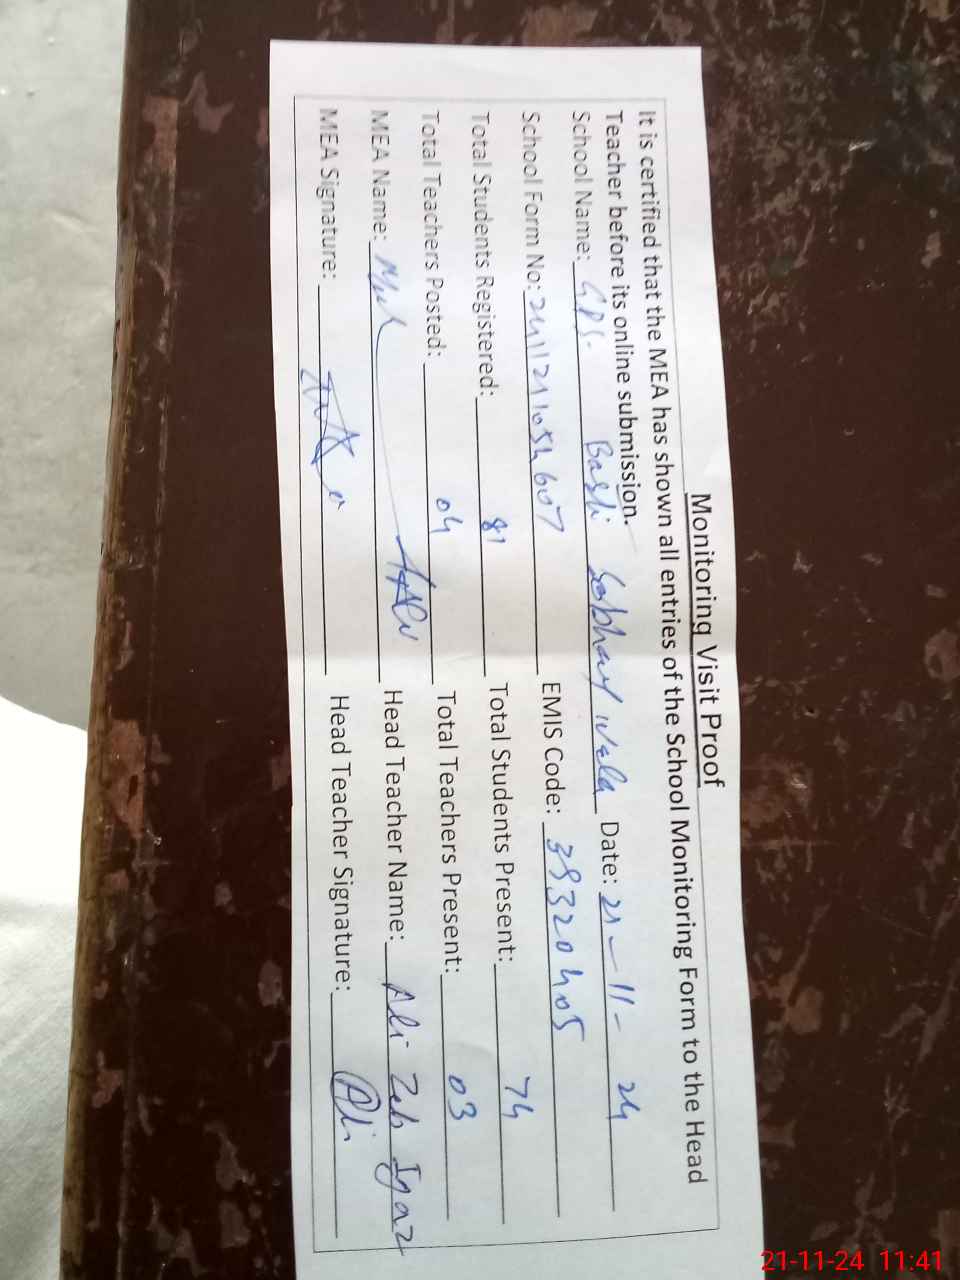 Monitoring Visit Proof
It is certified that the MEA has shown all entries of the School Monitoring Form to the Head
Teacher before its online submission.
School Name: GPS. Basti Sobhay Wala Date: 21-11-24
School Form No: EMIS Code: 38320405
Total Students Registered: 81 Total Students Present: 74
Total Teachers Posted: 04 Total Teachers Present: 03
MEA Name: Head Teacher Name: Ali Zeb Ijaz
MEA Signature: Head Teacher Signature: Ali
21-11-24 11:41